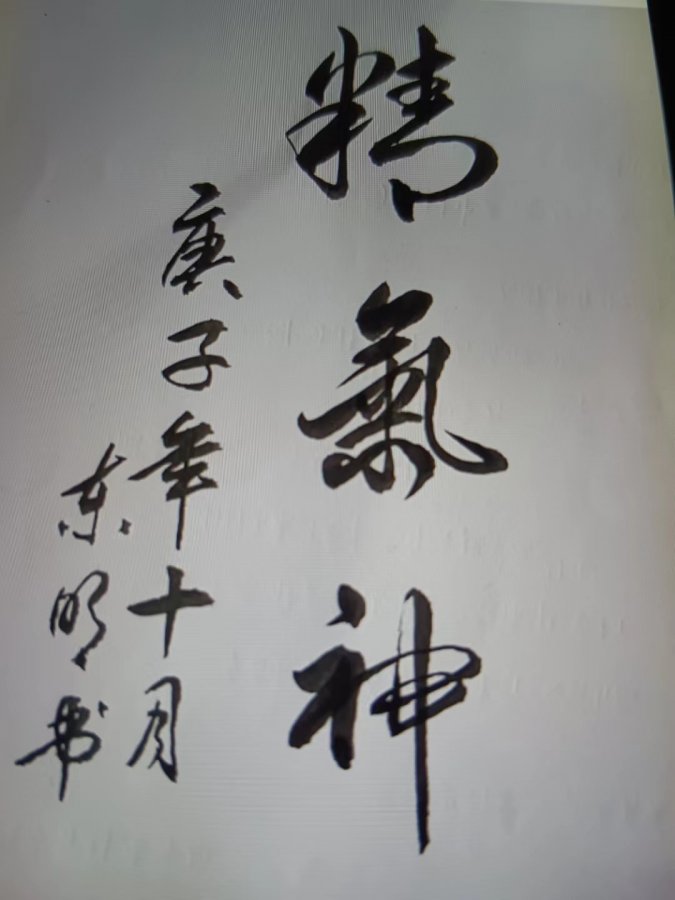 精氣神
庚子年十月
东明书